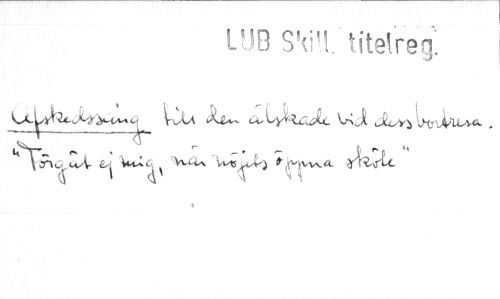 LUB Skill. titelreg.
Afskedssång till den älskade vid dess bortresa.
"Förgät ej mig, när nöjets öppna sköte"